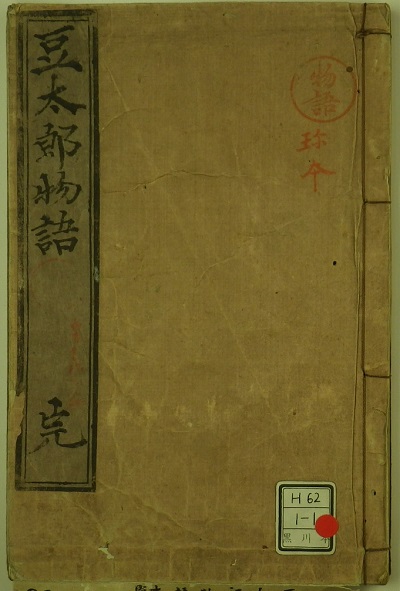 物語
珍本
豆太郎物語
完
H62
1-1
黒川